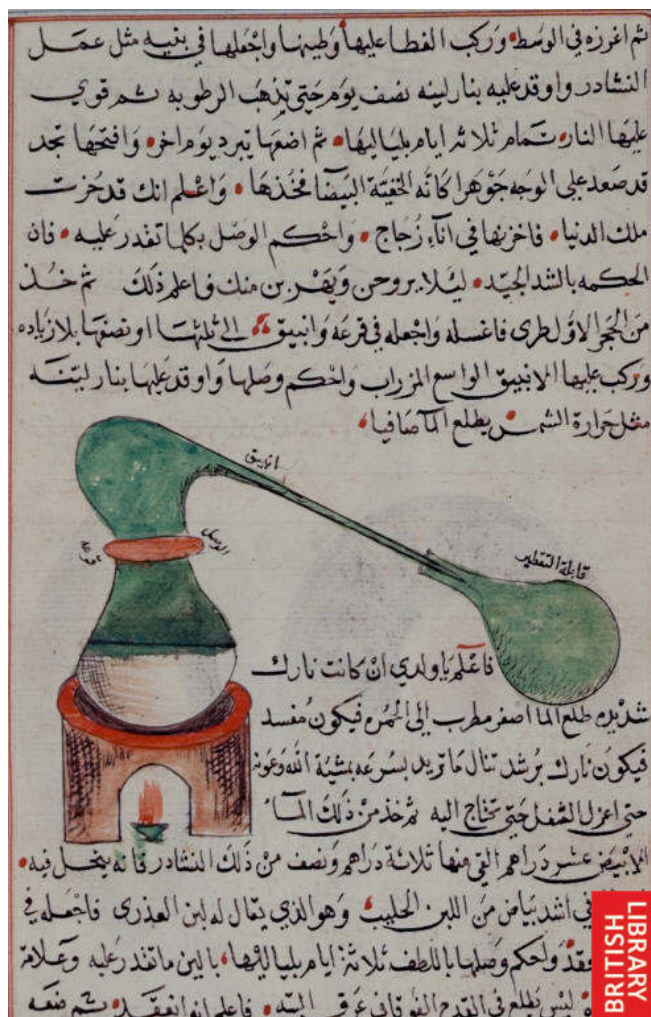 ثم اغرزه في الوسط وركب الغطا عليها وطينها واجعلها في بنيه مثل عمل
النشادر واوقد عليه بنار لينه نصف يوم حتى يذهب الرطوبه ثم قوي
عليها النار تمام ثلاثه ايام بلياليها ثم اضعها تبرد يوم اخر وافتحها تجد
قد صعد على الوجه جوهرا كانه البيضا فخذها واعلم انك قد حزت
ملك الدنيا فاخزنها في اناء زجاج واحكم الوصل بكلما تقدر عليه فان
الحكمه بالشد الجيد ليلا يروحن ويهربن منك فاعلم ذلك ثم خذ
من الحجر الاول طرى فاغسله واجعله في قرعه وانبيق الى ثلثها او نصفها بلا زياده
وركب عليها الانبيق الواسع المزراب واحكم وصلها واوقد عليها بنار لينه
مثل حرارة الشمس يطلع الما صافيا
انبيق
الوصل
قرعه
قابلة التقطير
فاعلم يا ولدي ان كانت نارك
شديده طلع الما اصفر مطرب الى الحمره فيكون مفسد
فيكون نارك برشد تنال ما تريد بسرعه بمشية الله وعونه
حتى اعزل الثفل حتى تحتاج اليه ثم خذ من ذلك الماء
الابيض عشر دراهم القي منها ثلاثة دراهم ونصف من ذلك النشادر فانه ينحل فيه
في اشد بياض من اللبن الحليب وهو الذي يقال له لبن العذرى فاجعله في
واحكم وصلها باللطف ثلاثة ايام بلياليها بالين ما تقدر عليه وعلامة
ليس يطلع في القدح الفوقاني عرق البته فاعلم انه انعقد ثم ضعه
BRITISH
LIBRARY